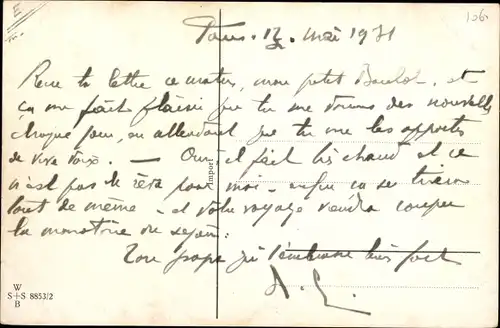 106
Paris. 12 mai 1931
Reçu ta lettre ce matin, mon petit et
ça me fait plaisir que tu me donnes des nouvelles
chaque jour, en attendant que tu me les apportes
de vive voix. — Oui il fait très chaud et ce
n'est pas le rêve pour moi - enfin ça se tirera
tout de même - et votre voyage viendra couper
la monotonie du séjour.
Ton papa qui t'embrasse bien fort
Import
W
S+S 8853/2
B